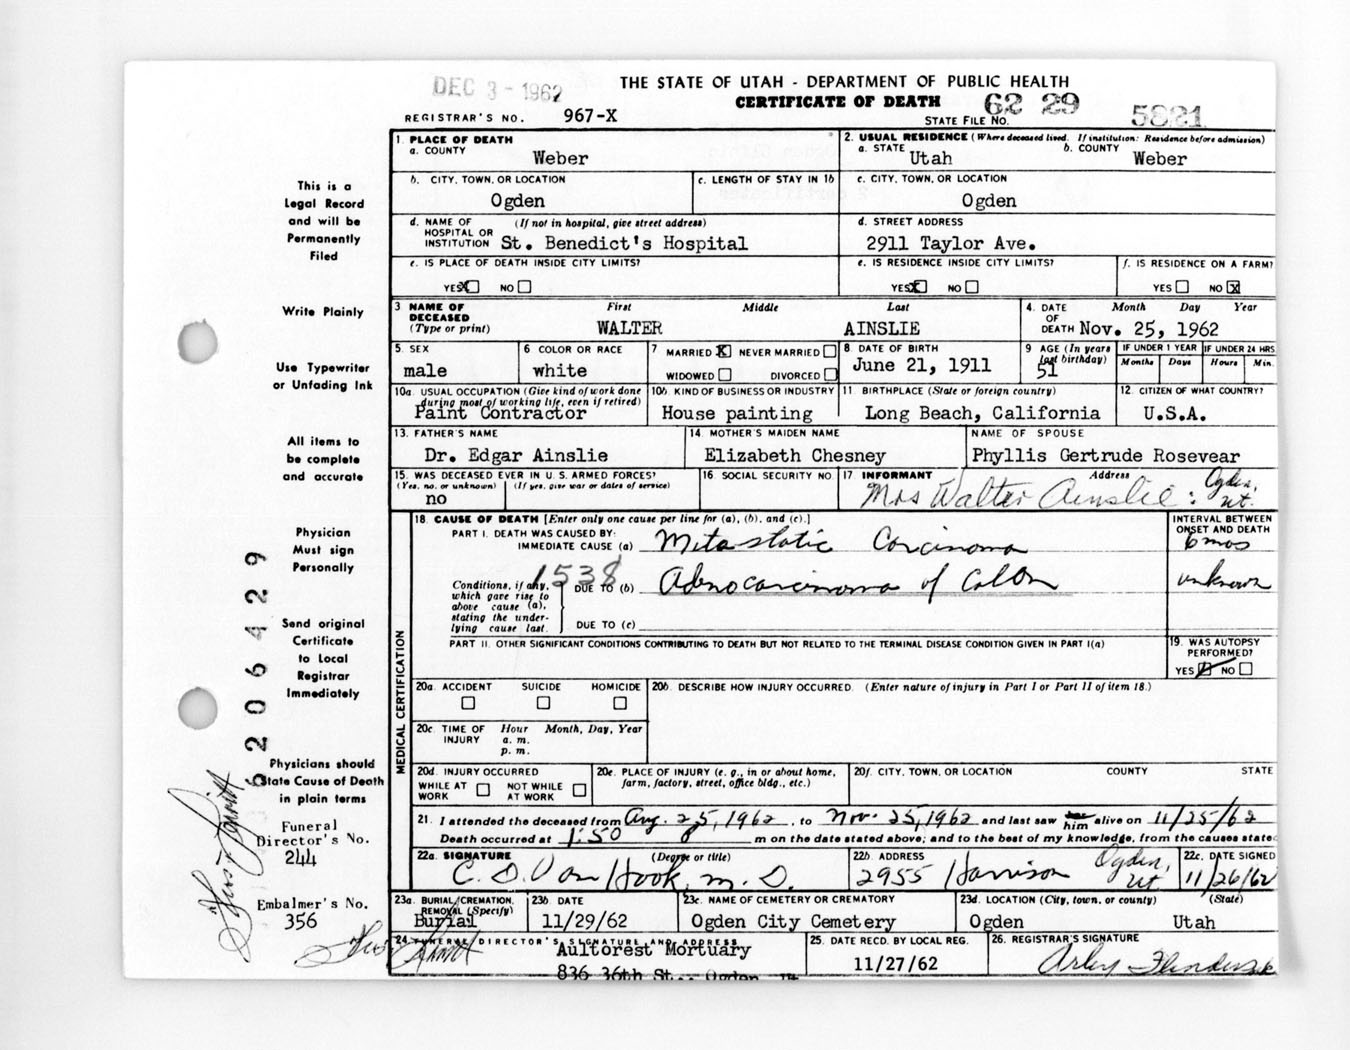 DEC 3 - 1962
THE STATE OF UTAH - DEPARTMENT OF PUBLIC HEALTH
CERTIFICATE OF DEATH
REGISTRAR'S NO. 967-X
STATE FILE NO. 62 29 5821
1. PLACE OF DEATH
a. COUNTY Weber
2. USUAL RESIDENCE (Where deceased lived. If institution: Residence before admission)
a. STATE Utah b. COUNTY Weber
b. CITY, TOWN, OR LOCATION Ogden
c. LENGTH OF STAY IN 1b
c. CITY, TOWN, OR LOCATION Ogden
d. NAME OF HOSPITAL OR INSTITUTION (If not in hospital, give street address) St. Benedict's Hospital
d. STREET ADDRESS 2911 Taylor Ave.
e. IS PLACE OF DEATH INSIDE CITY LIMITS?
YES X NO
e. IS RESIDENCE INSIDE CITY LIMITS?
YES X NO
f. IS RESIDENCE ON A FARM?
YES NO X
3 NAME OF DECEASED (Type or print)
First Middle Last
WALTER AINSLIE
4. DATE OF DEATH Month Day Year
Nov. 25, 1962
5. SEX male
6 COLOR OR RACE white
7 MARRIED X NEVER MARRIED
WIDOWED DIVORCED
8 DATE OF BIRTH June 21, 1911
9 AGE (In years last birthday) 51
IF UNDER 1 YEAR Months Days
IF UNDER 24 HRS. Hours Min.
10a. USUAL OCCUPATION (Give kind of work done during most of working life, even if retired)
Paint Contractor
10b. KIND OF BUSINESS OR INDUSTRY
House painting
11 BIRTHPLACE (State or foreign country)
Long Beach, California
12. CITIZEN OF WHAT COUNTRY?
U.S.A.
13. FATHER'S NAME
Dr. Edgar Ainslie
14. MOTHER'S MAIDEN NAME
Elizabeth Chesney
NAME OF SPOUSE
Phyllis Gertrude Rosevear
15. WAS DECEASED EVER IN U. S. ARMED FORCES?
(Yes, no, or unknown) (If yes, give war or dates of service)
no
16. SOCIAL SECURITY NO.
17 INFORMANT Address
Mrs Walter Ainslie : Ogden, Ut.
MEDICAL CERTIFICATION
18. CAUSE OF DEATH [Enter only one cause per line for (a), (b), and (c).]
INTERVAL BETWEEN ONSET AND DEATH
PART I. DEATH WAS CAUSED BY:
IMMEDIATE CAUSE (a) Metastatic Carcinoma 6 mos
1538
Conditions, if any, which gave rise to above cause (a), stating the underlying cause last.
DUE TO (b) Adenocarcinoma of Colon unknown
DUE TO (c)
PART II. OTHER SIGNIFICANT CONDITIONS CONTRIBUTING TO DEATH BUT NOT RELATED TO THE TERMINAL DISEASE CONDITION GIVEN IN PART I(a)
19. WAS AUTOPSY PERFORMED?
YES NO
20a. ACCIDENT SUICIDE HOMICIDE
20b. DESCRIBE HOW INJURY OCCURRED. (Enter nature of injury in Part I or Part II of item 18.)
20c. TIME OF INJURY Hour Month, Day, Year
a. m.
p. m.
20d. INJURY OCCURRED
WHILE AT WORK NOT WHILE AT WORK
20e. PLACE OF INJURY (e. g., in or about home, farm, factory, street, office bldg., etc.)
20f. CITY, TOWN, OR LOCATION COUNTY STATE
21. I attended the deceased from Aug. 25, 1962, to Nov. 25, 1962 and last saw him alive on 11/25/62
Death occurred at 1:50 m on the date stated above; and to the best of my knowledge, from the causes state
22a. SIGNATURE (Degree or title)
C. D. Van Hook, M. D.
22b. ADDRESS
2955 Harrison Ogden, Ut.
22c. DATE SIGNED
11/26/62
23a. BURIAL, CREMATION, REMOVAL (Specify)
Burial
23b. DATE
11/29/62
23c. NAME OF CEMETERY OR CREMATORY
Ogden City Cemetery
23d. LOCATION (City, town, or county) (State)
Ogden Utah
24. FUNERAL DIRECTOR'S SIGNATURE AND ADDRESS
Aultorest Mortuary
836 36th St., Ogden
25. DATE RECD. BY LOCAL REG.
11/27/62
26. REGISTRAR'S SIGNATURE
This is a
Legal Record
and will be
Permanently
Filed
Write Plainly
Use Typewriter
or Unfading Ink
All items to
be complete
and accurate
Physician
Must sign
Personally
Send original
Certificate
to Local
Registrar
Immediately
Physicians should
State Cause of Death
in plain terms
Funeral
Director's No.
244
Embalmer's No.
356
6206429